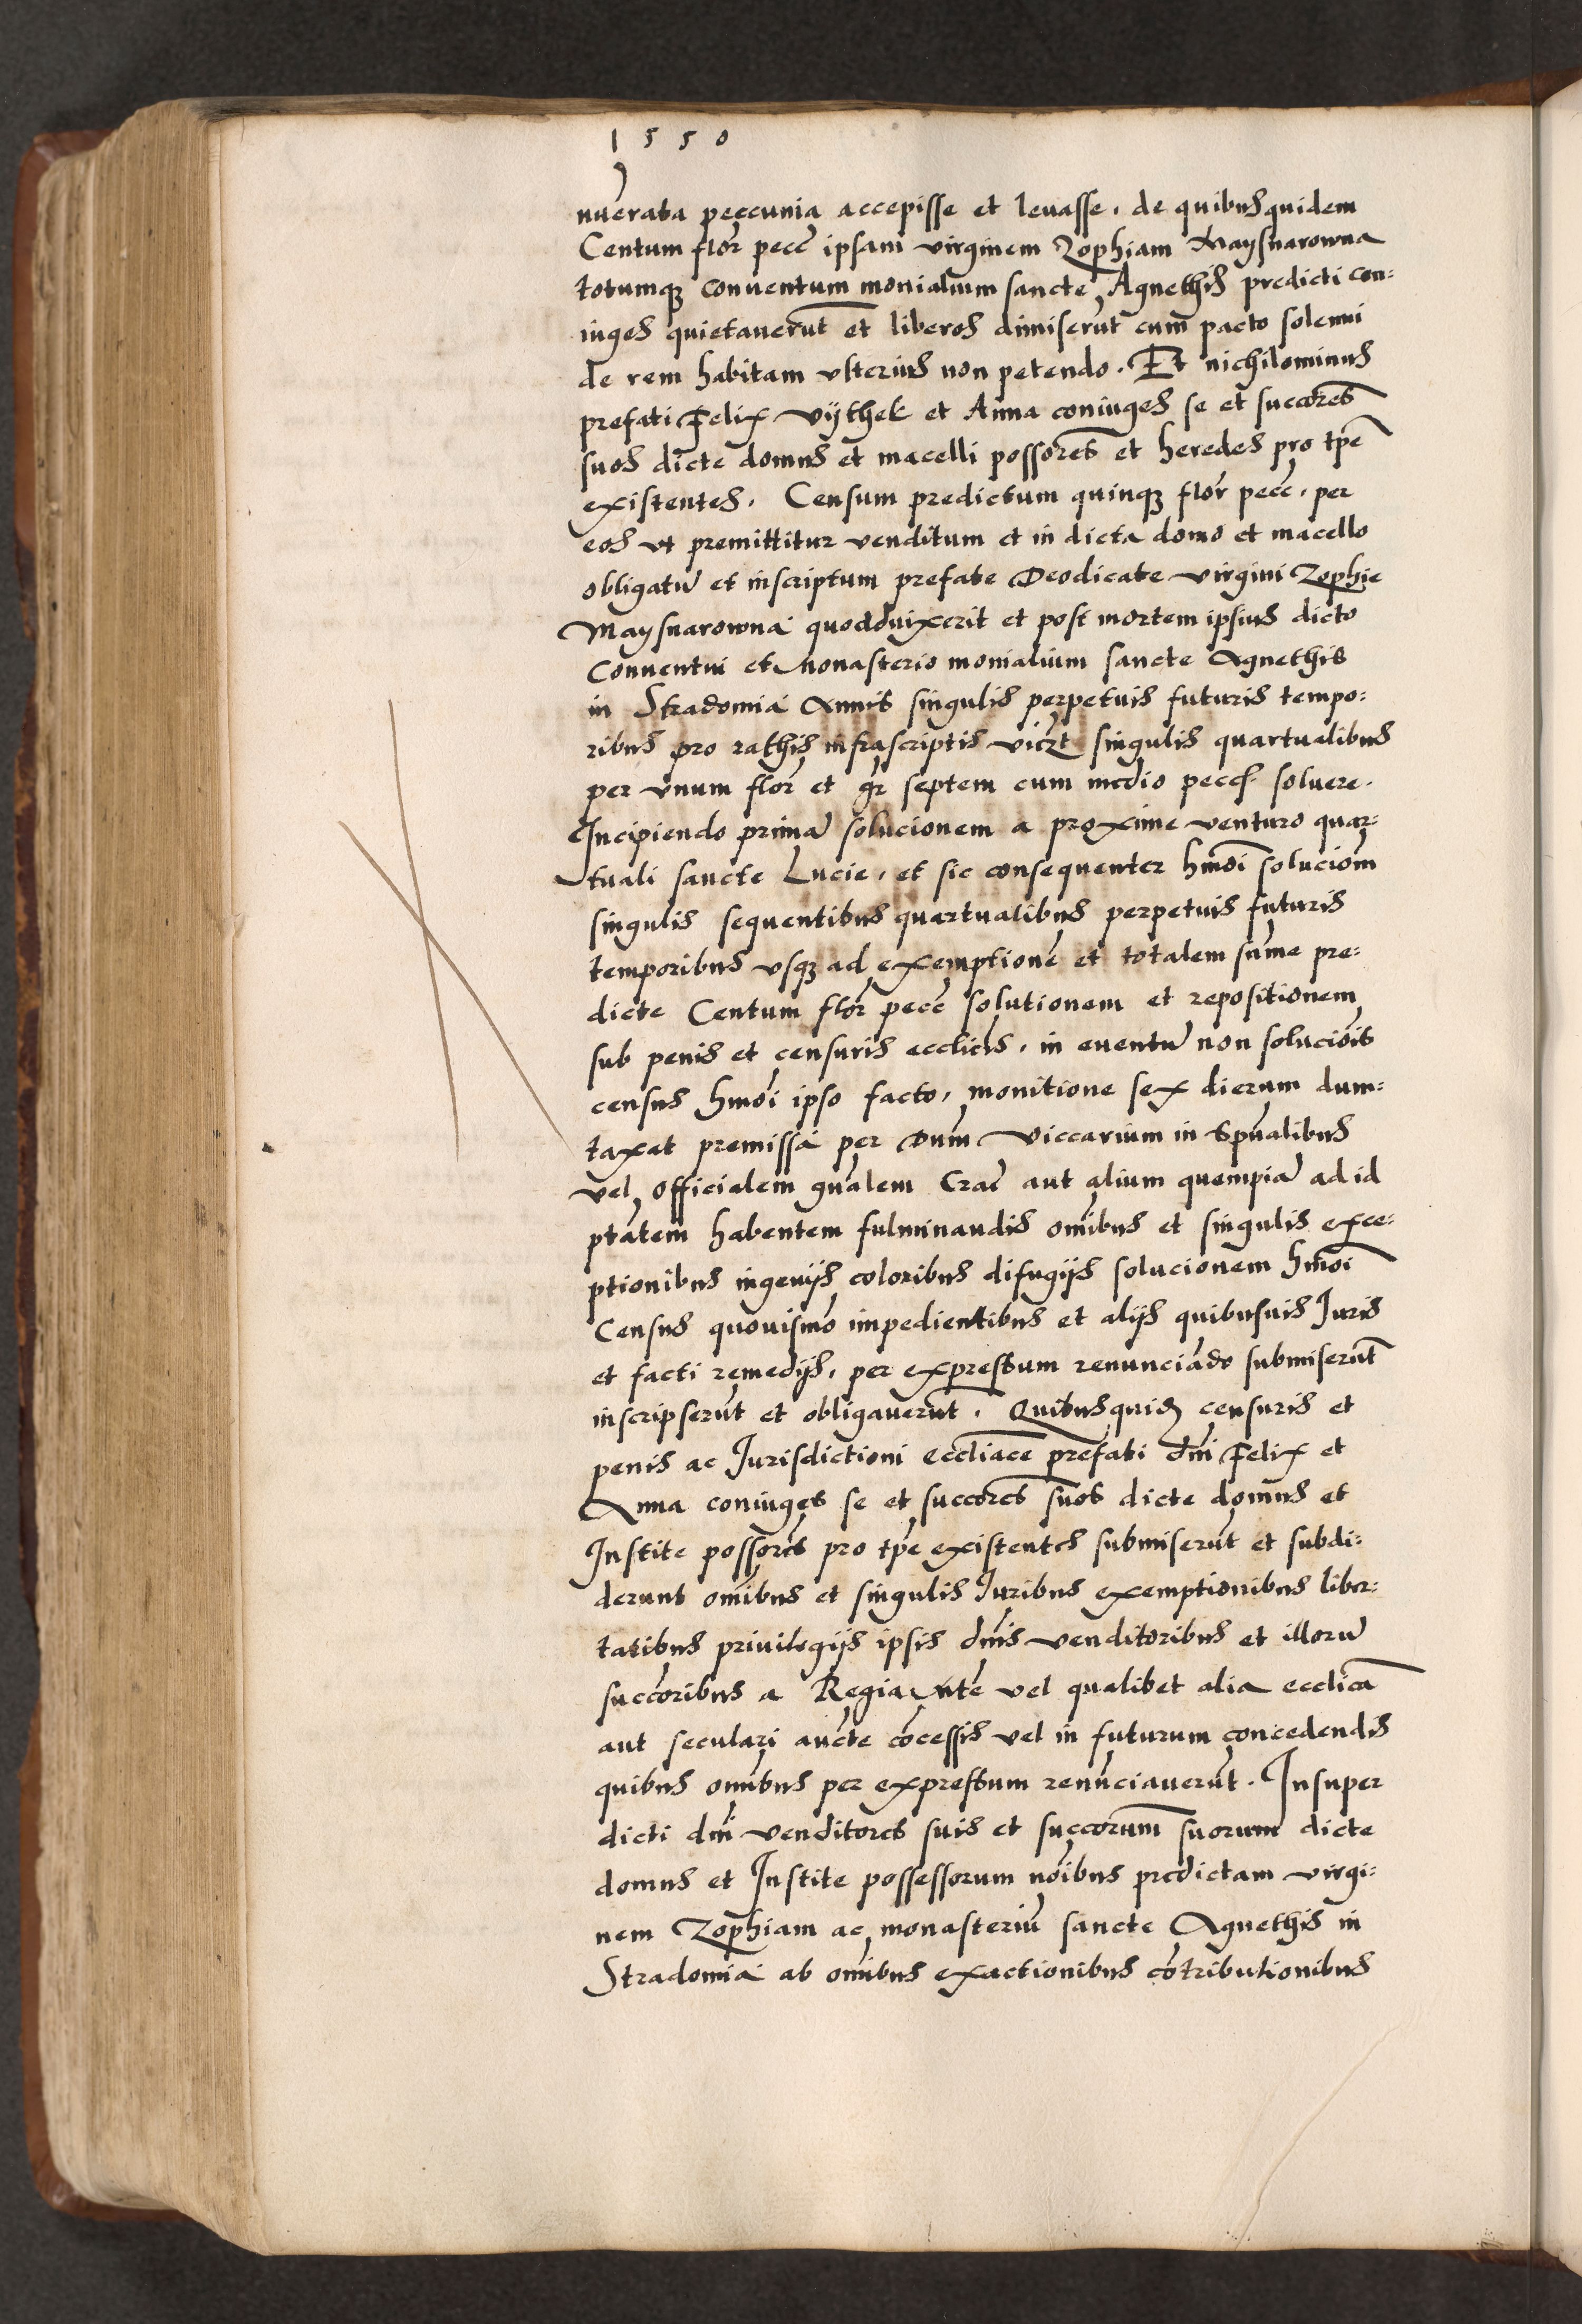 1550
nuerata peccunia accepisse et leuasse. de quibusquidem
Centum flor pecc ipsam virginem Zophiam Maysnarowna
totumq3 conuentum monialium sancte Agnethis predicti con=
iuges quietauerut et liberos dimiserut cum pacto solenni
de rem habitam vlterius non petendo. Et nichilominus
prefati Felix Vÿthek et Anna coniuges se et succores
suos dicte domus et macelli possores et heredes pro tpe
existentes. Censum predictum quinq3 flor pecc. per
eos vt premittitur venditum et in dicta domo et macello
obligatu et inscriptum prefate Deodicate virgini Zophie
Maysnarowna quoaduixerit et post mortem ipsius dicto
Conuentui et monasterio monialium sancte Agnethis
in Stradomia Annis singulis perpetuis futuris tempo=
ribus pro rathis infrascriptis viczt singulis quartualibus
per vnum flor et gr septem cum medio pecc soluere.
Incipiendo prima solucionem a proxime venturo quar=
tuali sancte Lucie, et sic consequenter hmoi soluciom
singulis sequentibus quartualibus perpetuis futuris
temporibus vsq3 ad exemptione et totalem sume pre=
dicte Centum flor pecc solutionem et repositionem
sub penis et censuris ecclicis. in euentu non solucois
census hmoi ipso facto, monitione sex dierum dum=
taxat premissa per Dnm Viccarium in Spualibus
vel officialem gnalem Crac aut alium quempia ad id
ptatem habentem fulminandis omibus et singulis exce=
ptionibus ingenijs coloribus difugijs solucionem hmoi
Census quouismo impedientibus et alijs quibusuis Juris
et facti remedijs, per expressum renunciado submiserut
inscripserut et obligauerut. Quibusquid censuris et
penis ac Jurisdictioni eccliace prefati dni Felix et
Anna coniuges se et succores suos dicte domus et
Instite possores pro tpe existentes submiserut et subdi=
derunt omibus et singulis Juribus exemptionibus liber=
tatibus priuilegijs ipsis dnis venditoribus et illoru
succoribus a Regia Mte vel qualibet alia ecclica
aut seculari aucte cocessis vel in futurum concedendis
quibus omibus per expressum renunciauerut. Insuper
dicti dni venditores suis et succorum suorum dicte
domus et Instite possessorum noibus predictam virgi=
nem Zophiam ac monasteriu sancte Agnethis in
Stradomia ab omibus exactionibus cotributionibus